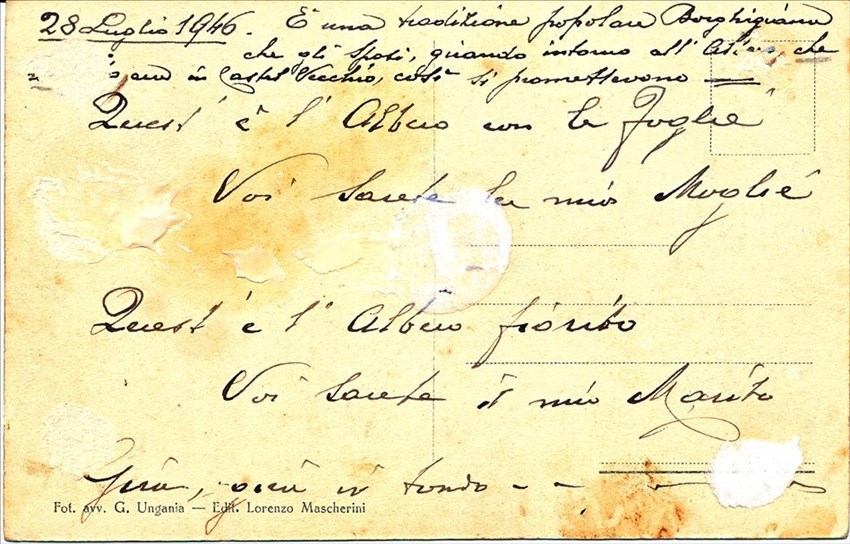 28 Luglio 1946. È una tradizione popolare Borghigiana
che gli sposi, quando intorno all' Albero, che
era in Castel Vecchio, così si promettevano
Quest' è l' Albero con le foglie
Voi sarete la mia Moglie
Quest' è l' Albero fiorito
Voi sarete il mio Marito
Gira, gira in tondo - -
Fot. avv. G. Ungania — Edit. Lorenzo Mascherini